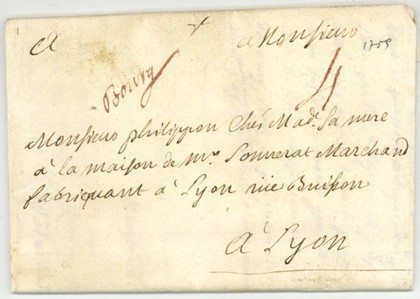 A a Monsieur 1759
Bourg
Monsieur philippon Chés Made. sa mere
à la maison de mr. Sonnerat Marchand
fabriquant à Lyon rüe Buisson
à Lyon